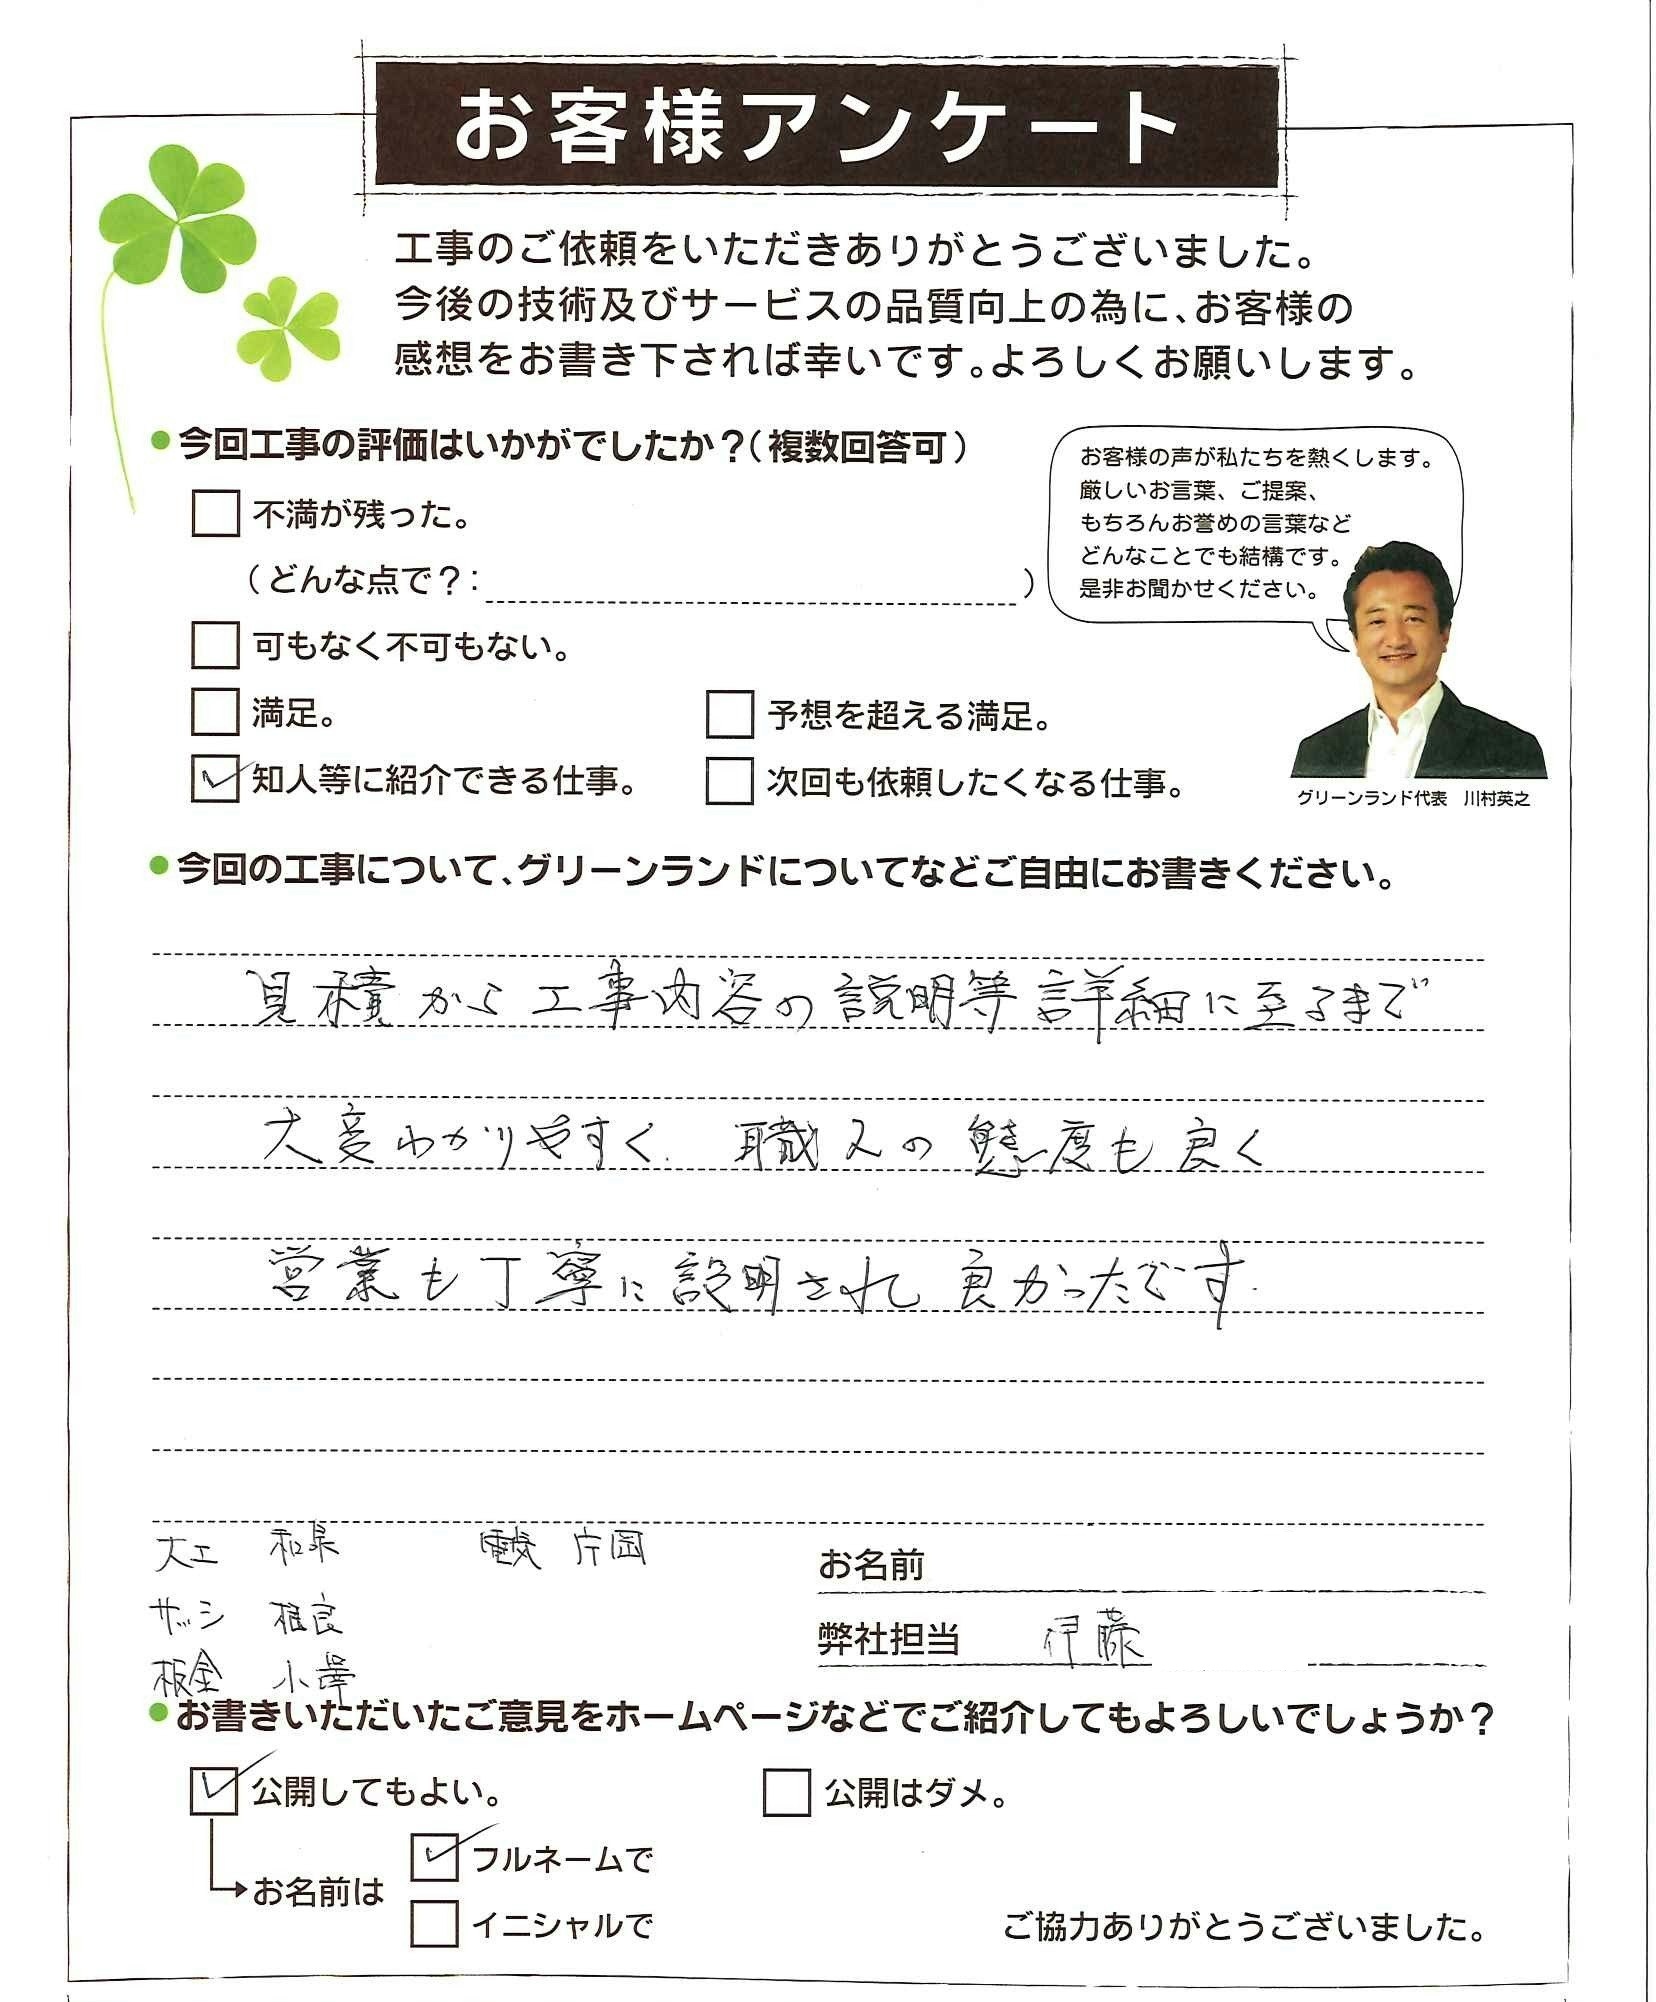 お客様アンケート
工事のご依頼をいただきありがとうございました。
今後の技術及びサービスの品質向上の為に、お客様の
感想をお書き下されば幸いです。よろしくお願いします。
●今回工事の評価はいかがでしたか？（複数回答可）
不満が残った。
（どんな点で？：　）
可もなく不可もない。
満足。
予想を超える満足。
知人等に紹介できる仕事。
次回も依頼したくなる仕事。
お客様の声が私たちを熱くします。
厳しいお言葉、ご提案、
もちろんお誉めの言葉など
どんなことでも結構です。
是非お聞かせください。
グリーンランド代表　川村英之
●今回の工事について、グリーンランドについてなどご自由にお書きください。
見積から工事内容の説明等詳細に至るまで
大変わかりやすく、職人の態度も良く
営業も丁寧に説明され良かったです.
大工
電気 片岡
サッシ 相良
板金 小澤
お名前
弊社担当 伊藤
●お書きいただいたご意見をホームページなどでご紹介してもよろしいでしょうか？
公開してもよい。
公開はダメ。
お名前は
フルネームで
イニシャルで
ご協力ありがとうございました。